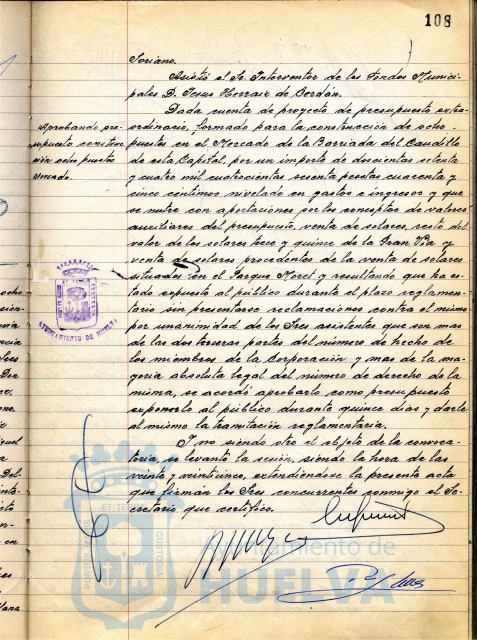 108
Soriano.
Asistió el Sr. Interventor de los Fondos Munici-
pales D. Jesus Herraiz de Cerdán.
Dada cuenta de proyecto de presupuesto extra-
ordinario, formado para la construcción de ocho
puestos en el Mercado de la Barriada del Caudillo
de esta Capital, por un importe de doscientas setenta
y cuatro mil cuatrocientas sesenta pesetas cuarenta y
cinco centimos nivelado en gastos e ingresos y que
se nutre con aportaciones por los conceptos de valores
auxiliares del presupuesto, venta de solares, resto del
valor de los solares trece y quince de la Gran Vía y
venta de solares procedentes de la venta de solares
situados en el Parque Moret y resultando que ha es-
tado expuesto al público durante el plazo reglamen-
tario sin presentarse reclamaciones contra el mismo
por unanimidad de los Sres asistentes que son mas
de las dos terceras partes del número de hecho de
los miembros de la Corporación y mas de la ma-
yoria absoluta legal del número de derecho de la
misma, se acordó aprobarlo como presupuesto
exponerlo al público durante quince días y darle
al mismo la tramitación reglamentaria.
Y no siendo otro el objeto de la convoca-
toria, se levanto la sesión, siendo la hora de las
veinte y veinticinco, extendiendose la presente acta
que firman los Sres concurrentes conmigo el Se-
cretario que certifico.
Aprobando pre-
supuesto construc-
ción ocho puestos
Mercado.
AYUNTAMIENTO DE HUELVA
Ayuntamiento de
HUELVA